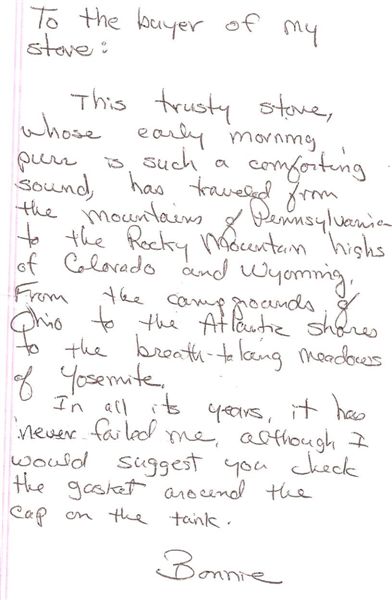 To the buyer of my
stove:
This trusty stove,
whose early morning
purr is such a comforting
sound, has traveled from
the mountains of Pennsylvania
to the Rocky Mountain highs
of Colorado and Wyoming.
From the campgrounds of
Ohio to the Atlantic shores
to the breath-taking meadows
of Yosemite.
In all its years, it has
never failed me, although I
would suggest you check
the gasket around the
cap on the tank.
Bonnie